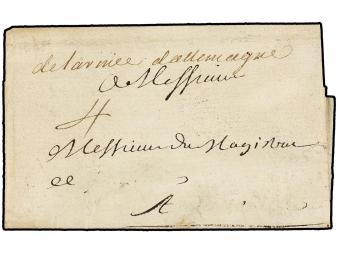 de larmée dallemagne
A Messieurs
4
Messieurs du Magistrat
ee
A